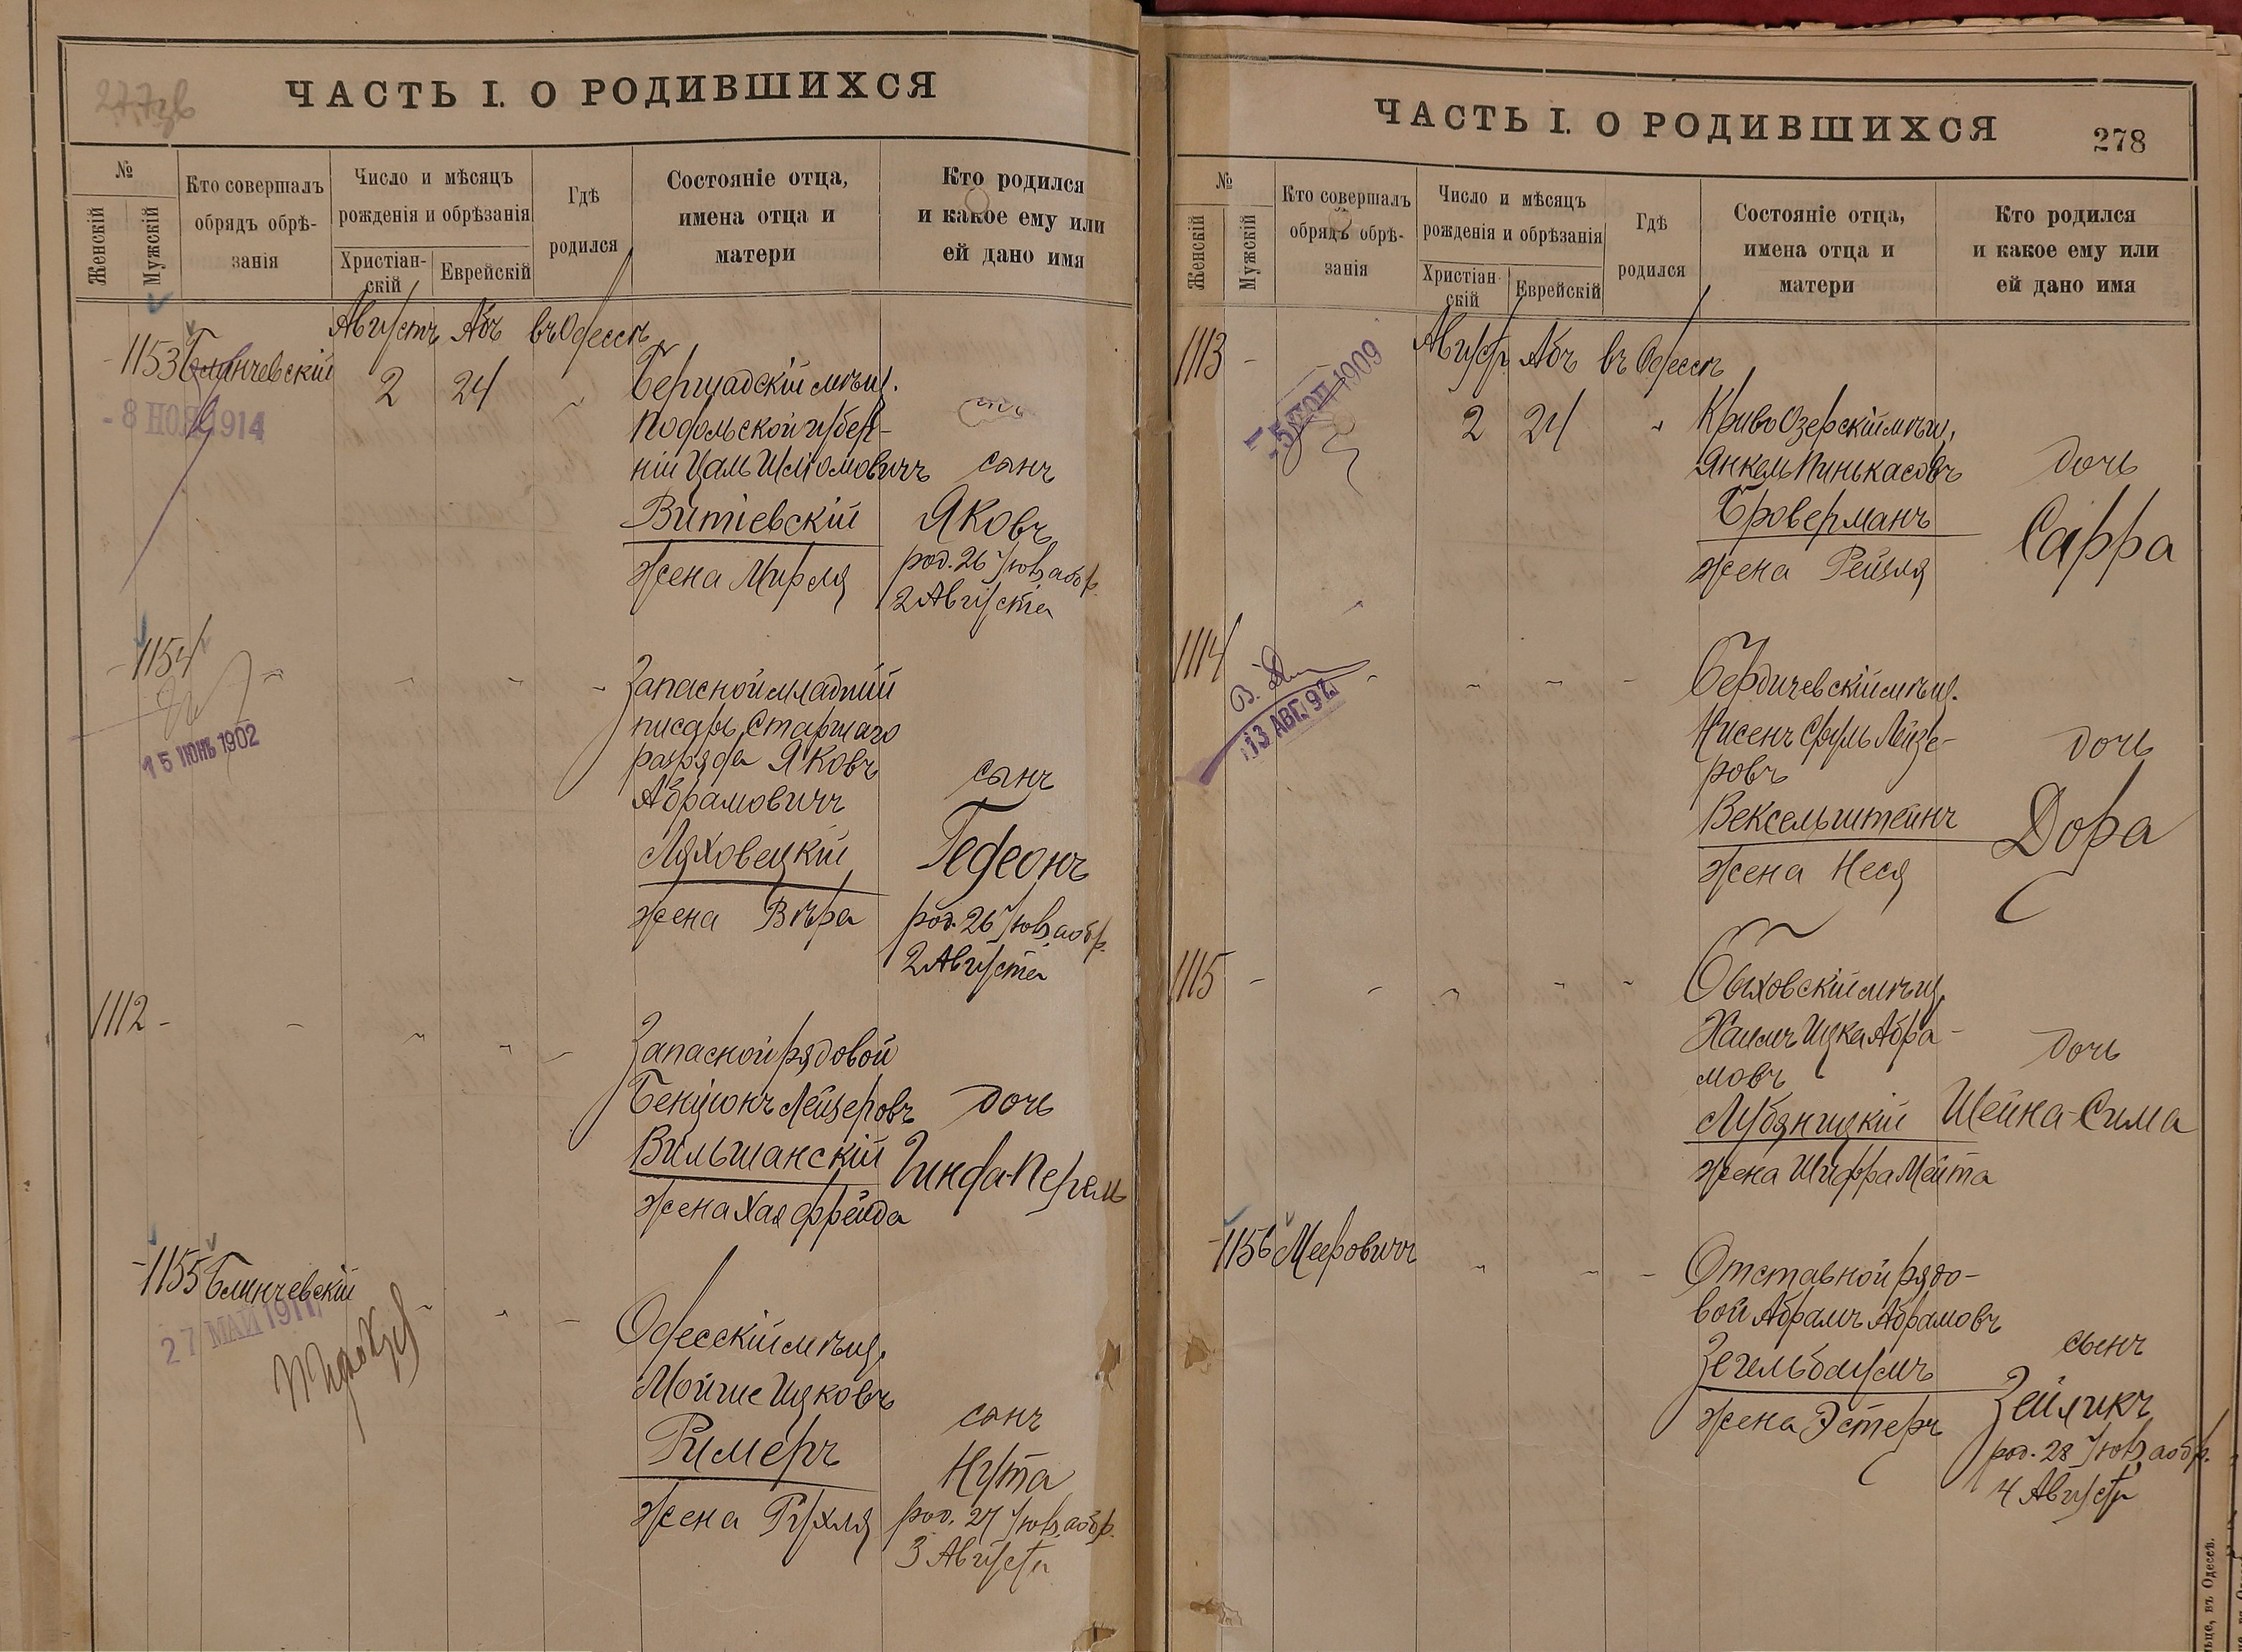 ЧАСТЬ I. О РОДИВШИХСЯ
№
Женскій
Мужскій
Кто совершалъ
обрядъ обрѣ-
занія
Число и мѣсяцъ
рожденія и обрѣзанія
Христіан-
скій
Еврейскій
Гдѣ
родился
Состояніе отца,
имена отца и
матери
Кто родился
и какое ему или
ей дано имя
Августъ Абъ въ Одессѣ
1153 Блинчевскій 2 24 Бершадскій мѣщ.
- 8 НОЯ 1914
Подольской губер-
ніи Цаль Шліомовичъ сынъ
Витіевскій Яковъ
жена Мирля
род. 26 Іюля, а обр.
2 Августа
1154
15 ІЮНЬ 1902
Запасной младшій
писарь старшаго
разряда Яковъ
Абрамовичъ
сынъ
Ляховецкій Гедеонъ
жена Вѣра
род. 26 Іюля, а обр.
2 Августа
1112 -
Запасной рядовой
Бенціонъ Лейзеровъ дочь
Вильшанскій Гинда-Перель
жена Хая Фрейда
1155 Блинчевскій
27 МАЙ 1911
Одесскій мѣщ.
Мойше Ицковъ
сынъ
Ример Нута
жена Рухля
род. 27 Іюля, а обр.
3 Августа
ЧАСТЬ I. О РОДИВШИХСЯ
278
№
Женскій
Мужскій
Кто совершалъ
обрядъ обрѣ-
занія
Число и мѣсяцъ
рожденія и обрѣзанія
Христіан-
скій
Еврейскій
Гдѣ
родился
Состояніе отца,
имена отца и
матери
Кто родился
и какое ему или
ей дано имя
Август Абъ въ Одессѣ
1113 - 2 24 КривоОзерскій мѣщ.
1909
Янкель Пинькасовъ дочь
Броверманъ Сарра
жена Рейзля
1114
13 АВГ. 97
Бердичевскій мѣщ.
Нисенъ Сруль Лейзе-
ровъ
дочь
Вексельштейнъ Дора
жена Неся
1115 -
Быховскій мѣщ.
Хаимъ Ицка Абра-
мовъ
дочь
Лубяницкій Шейна-Сима
жена Шифра Мейта
1156 Мееровичъ
Отставной рядо-
вой Абрамъ Абрамовъ
сынъ
Зегельбаумъ Зейликъ
жена Эстеръ
род. 28 Іюля, а обр.
4 Августа
въ Одессѣ.